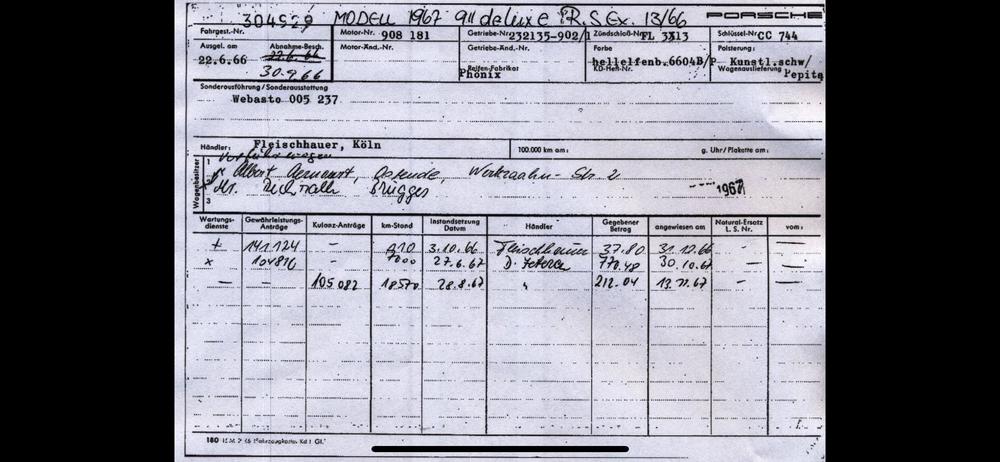 304529 MODELL 1967 911 deluxe R.S Ex. 13/66 PORSCHE
Fahrgest.-Nr. Motor-Nr. 908 181 Getriebe-Nr. 232135-902/1 Zündschloß-Nr. FL 3313 Schlüssel-Nr. CC 744
Ausgel. am Abnahme-Besch. Motor-Änd.-Nr. Getriebe-Änd.-Nr. Farbe Polsterung:
22.6.66 22.6.66 hellelfenb.6604B/P Kunstl.schw/
30.9.66 Reifen-Fabrikat KD-Heft-Nr. Wagenauslieferung Pepita
Phönix
Sonderausführung/Sonderausstattung
Webasto 005 237
Händler: Fleischhauer, Köln 100.000 km am: g. Uhr/Plakette am:
Vorführwagen
Wagenbesitzer
1 Albert Ostende, Str. 2
2 Mr. Brügges 1967
3
Wartungs-dienste Gewährleistungs-Anträge Kulanz-Anträge km-Stand Instandsetzung Datum Händler Gegebener Betrag angewiesen am Natural-Ersatz L. S. Nr. vom:
+ 141.124 - 910 3.10.66 Fleischhauer 37.80 31.12.66 - —
x 104810 - 7000 27.6.67 D' 770.48 30.10.67 - —
— - 105082 18570 28.8.67 " 212.04 13.11.67 - —
180